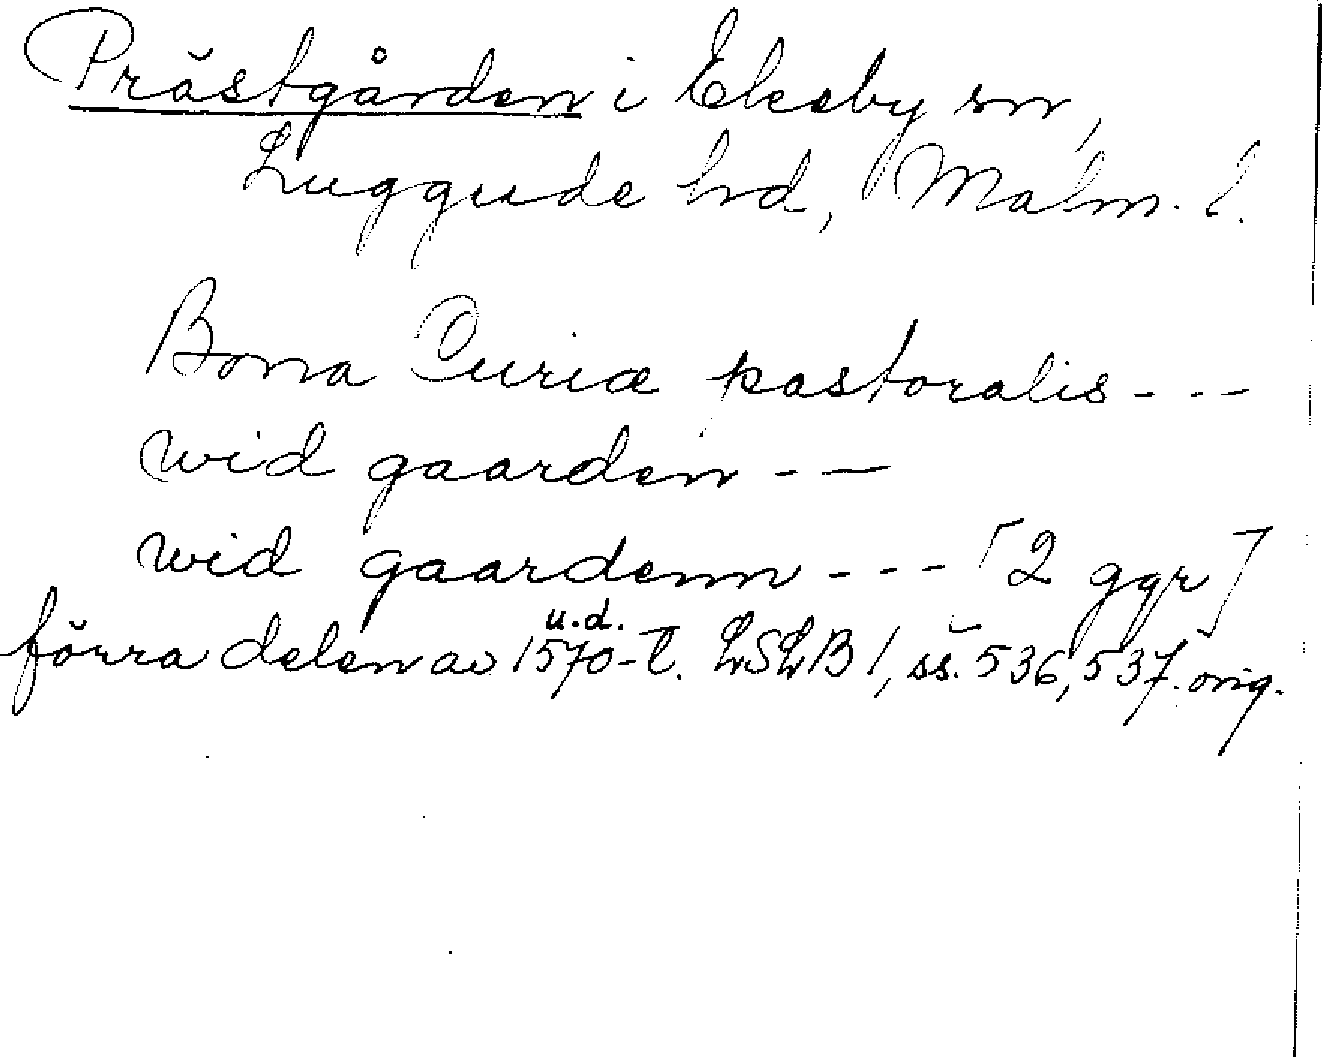 Prästgården i Ekeby sn,
Luggude hd, Malm. l.
Bona Curiæ pastoralis - - -
wid gaarden - -
wid gaardenn - - - [2 ggr]
u.d.
förra delen av 1570-t. LSLB 1, ss. 536, 537. orig.